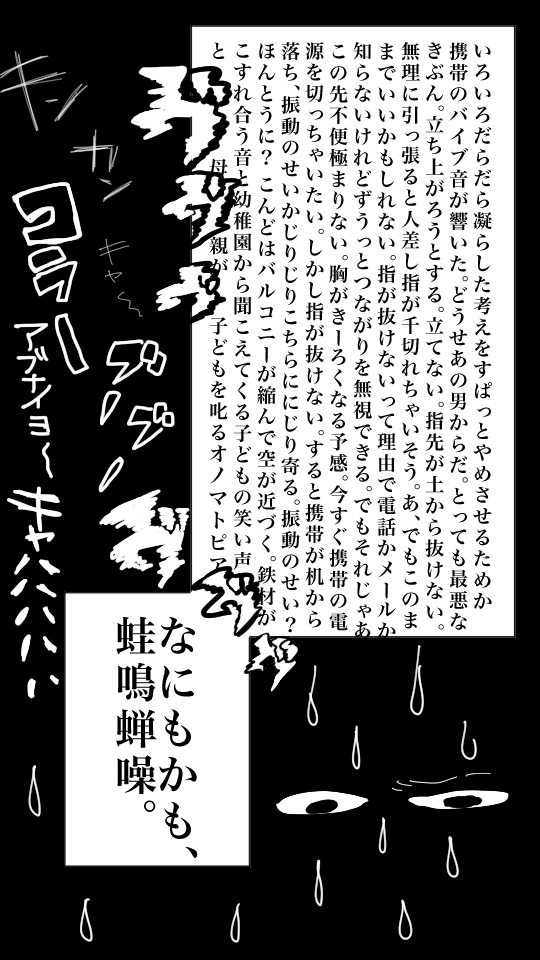 いろいろだらだら凝らした考えをすぱっとやめさせるためか
携帯のバイブ音が響いた。どうせあの男からだ。とっても最悪な
きぶん。立ち上がろうとする。立てない。指先が土から抜けない。
無理に引っ張ると人差し指が千切れちゃいそう。あ、でもこのま
までいいかもしれない。指が抜けないって理由で電話かメールか
知らないけれどずうっとつながりを無視できる。でもそれじゃあ
この先不便極まりない。胸がきーろくなる予感。今すぐ携帯の電
源を切っちゃいたい。しかし指が抜けない。すると携帯が机から
落ち、振動のせいかじりじりこちらににじり寄る。振動のせい？
ほんとうに？こんどはバルコニーが縮んで空が近づく。鉄材が
こすれ合う音と幼稚園から聞こえてくる子どもの笑い声
と
母親が
子どもを叱るオノマトピア
キン
カン
キャ〜
コラー
アブナイヨ〜
キャハハハハ
ブーブー
なにもかも、
蛙鳴蝉噪。